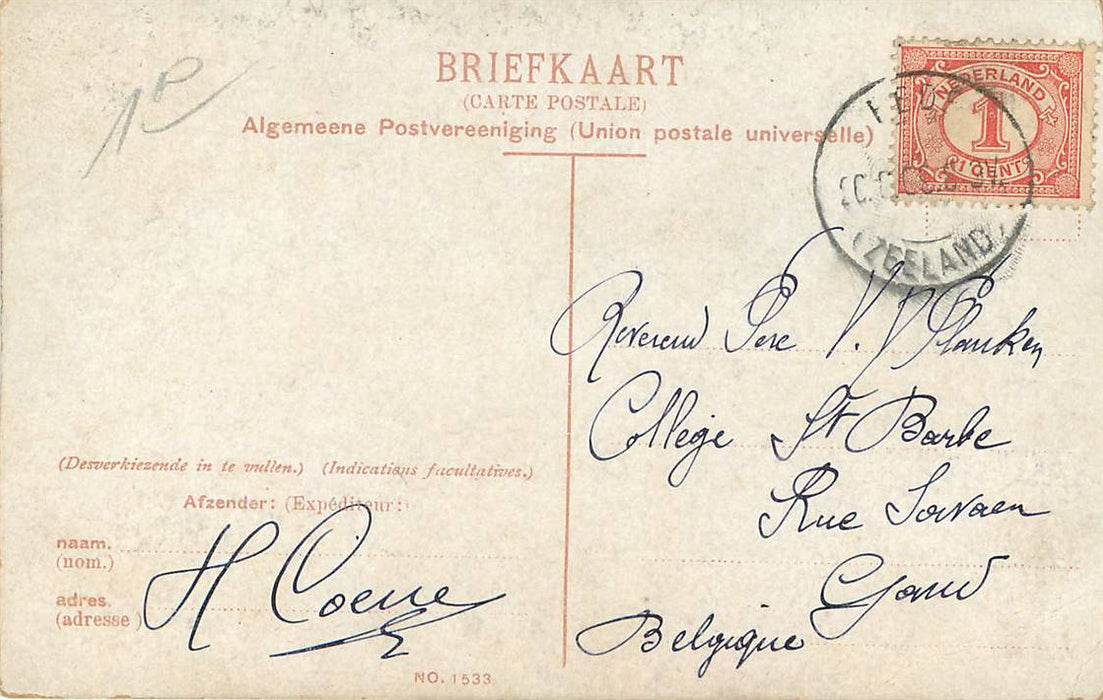 BRIEFKAART
(CARTE POSTALE)
Algemeene Postvereeniging (Union postale universelle)
NEDERLAND
1
1 CENT
(ZEELAND)
Reverend Père V. V Plancken
College St Barbe
Rue Savaen
Gand
Belgique
(Desverkiezende in te vullen.) (Indications facultatives.)
Afzender: (Expéditeur:)
naam.
(nom.)
adres.
(adresse)
H Coene
NO. 1533